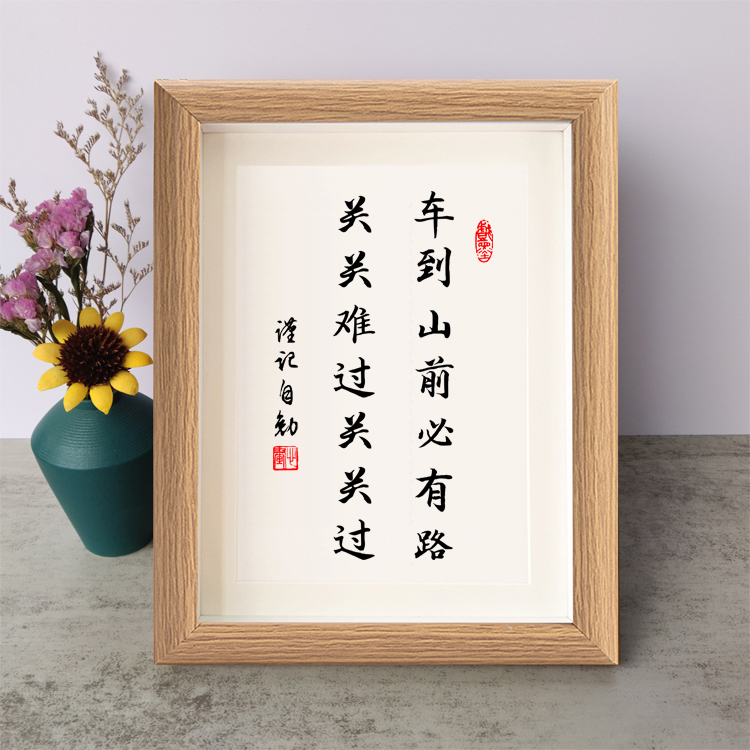 车到山前必有路
关关难过关关过
谨记自勉